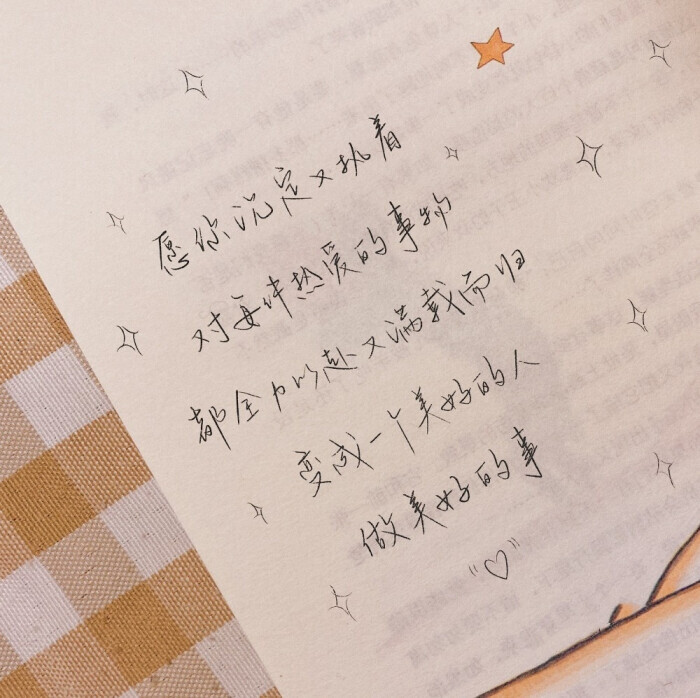 愿你沉定又执着
对每件热爱的事物
都全力以赴又满载而归
变成一个美好的人
做美好的事